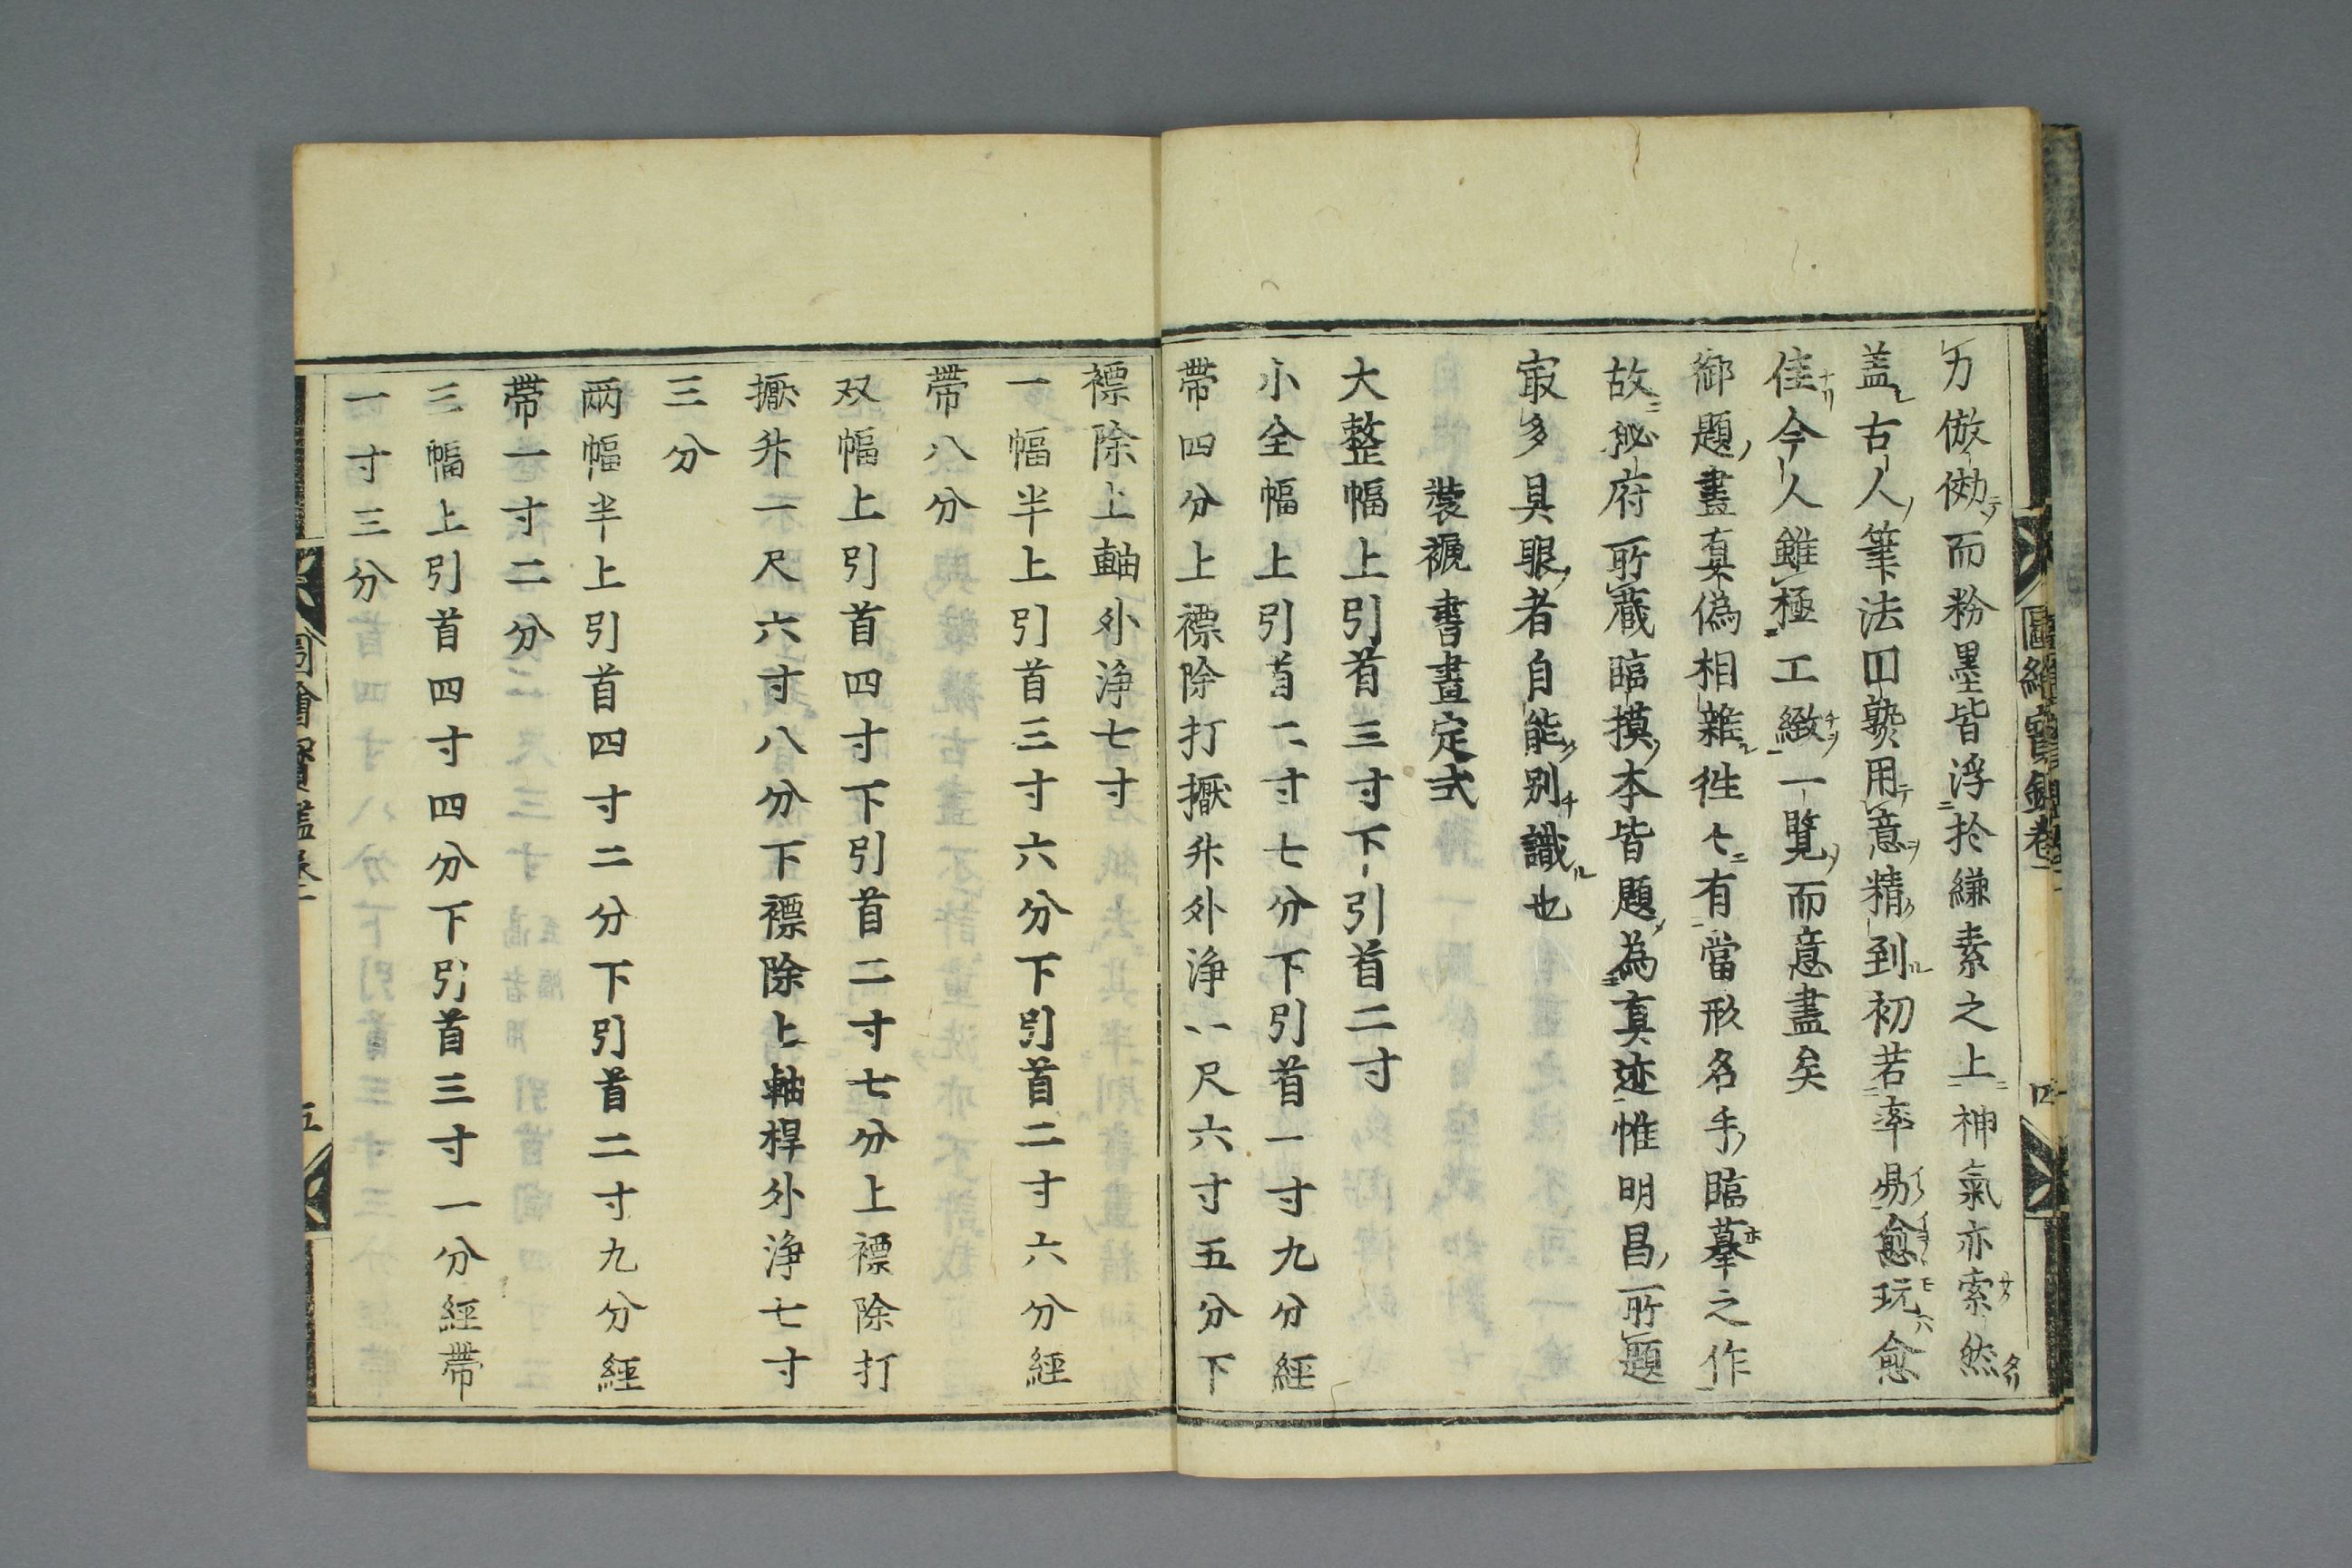 力倣傚而粉墨皆浮於縑素之上神氣亦索然
盖古人筆法囙𤍠用意精到初若率易愈玩愈
佳今人雖極工緻一覽而意盡矣
御題畫真偽相雜徃〻有當形名手臨摹之作
故秘府所蔵臨摸本皆題為真迹惟明昌所題
㝡多具眼者自能别識也
裝褫書畫定式
大整幅上引首三寸下引首二寸
小全幅上引首二寸七分下引首一寸九分經
帶四分上褾除打擫升外浄一尺六寸五分下
褾除上軸外浄七寸
一幅半上引首三寸六分下引首二寸六分經
帶八分
双幅上引首四寸下引首二寸七分上褾除打
擫升一尺六寸八分下褾除上軸桿外浄七寸
三分
兩幅半上引首四寸二分下引首二寸九分經
帶一寸二分
三幅上引首四寸四分下引首三寸一分經帶
一寸三分
圖繪寶鑑卷一
四
圖繪寶鑑卷一
五